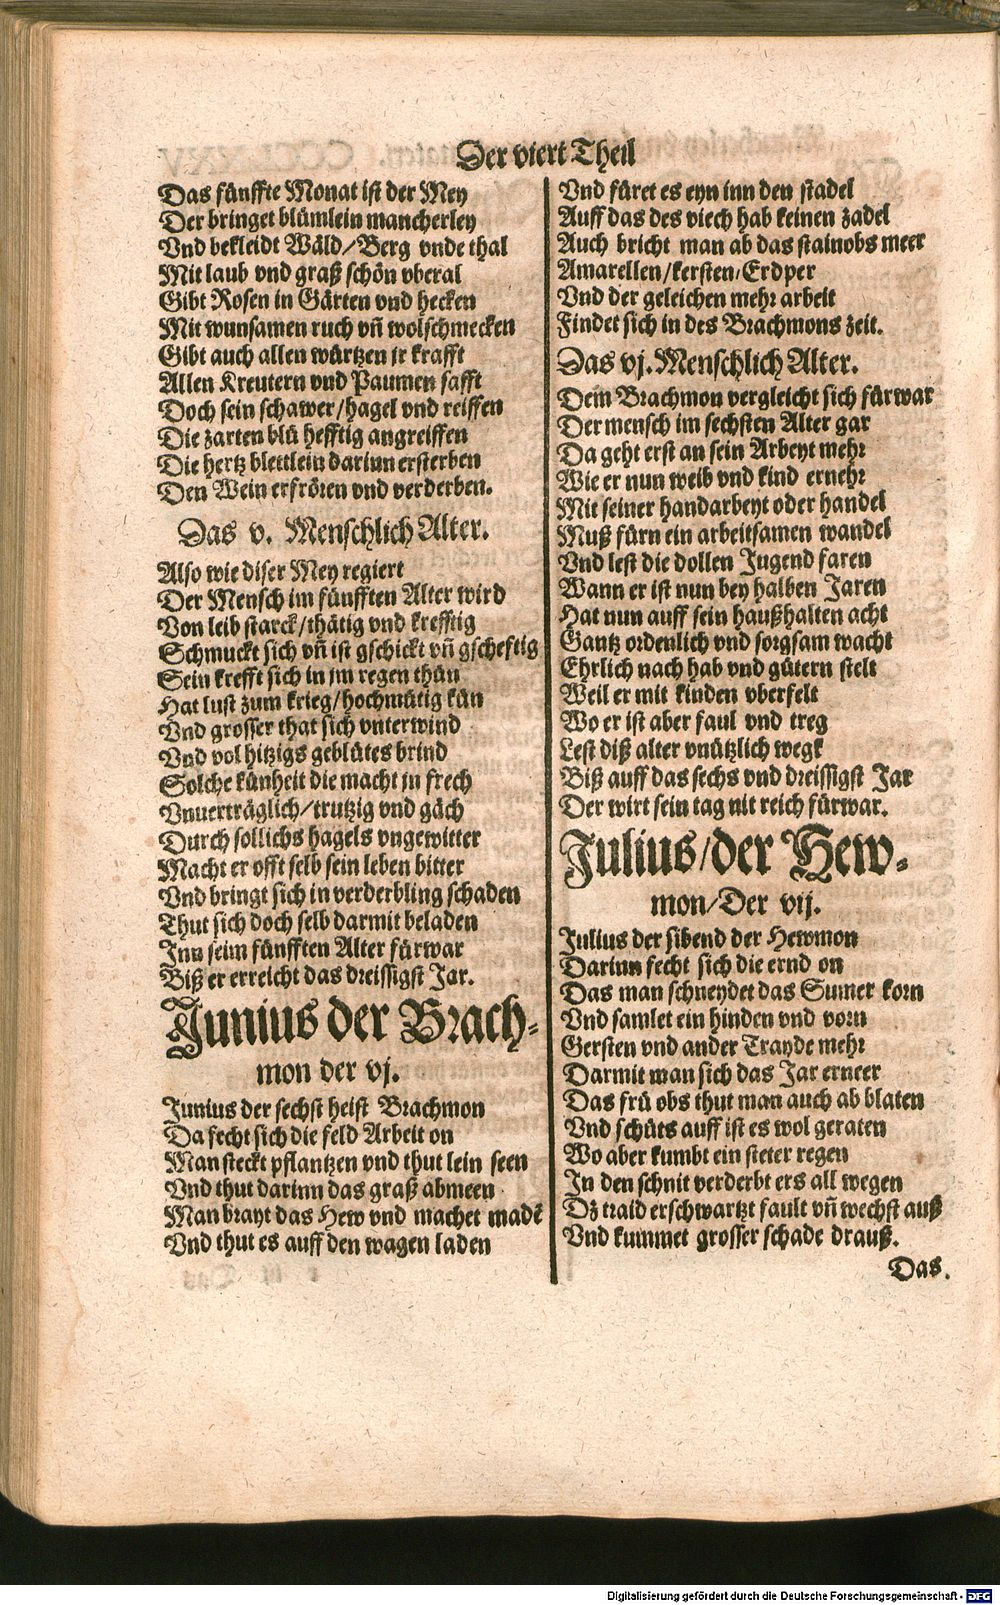 Der viert Theil
Das fünffte Monat ist der Mey
Der bringet blümlein mancherley
Vnd bekleidt Wäld/Berg vnde thal
Mit laub vnd graß schön vberal
Gibt Rosen in Gärten vnd hecken
Mit wunsamen ruch vñ wolschmecken
Gibt auch allen würtzen jr krafft
Allen Kreutern vnd Paumen safft
Doch sein schawer/hagel vnd reiffen
Die zarten blü hefftig angreiffen
Die hertz blettlein darinn ersterben
Den Wein erfrören vnd verderben.
Das v. Menschlich Alter.
Also wie diser Mey regiert
Der Mensch im fünfften Alter wird
Von leib starck/thätig vnd krefftig
Schmuckt sich vñ ist gschickt vñ gscheftig
Sein krefft sich in jm regen thün
Hat lust zum krieg/hochmütig kün
Vnd grosser that sich vnterwind
Vnd vol hitzigs geblütes brind
Solche künheit die macht jn frech
Vnuerträglich/trutzig vnd gäch
Durch sollichs hagels vngewitter
Macht er offt selb sein leben bitter
Vnd bringt sich in verderbling schaden
Thut sich doch selb darmit beladen
Inn seim fünfften Alter fürwar
Biß er erreicht das dreissigst Jar.
Junius der Brach-
mon der vj.
Junius der sechst heist Brachmon
Da fecht sich die feld Arbeit on
Man steckt pflantzen vnd thut lein seen
Vnd thut darinn das graß abmeen
Man brayt das Hew vnd machet madē
Vnd thut es auff den wagen laden
Vnd füret es eyn inn den stadel
Auff das des viech hab keinen zadel
Auch bricht man ab das stainobs meer
Amarellen/kersten/Erdper
Vnd der geleichen mehr arbeit
Findet sich in des Brachmons zeit.
Das vj. Menschlich Alter.
Dem Brachmon vergleicht sich fürwar
Der mensch im sechsten Alter gar
Da geht erst an sein Arbeyt mehr
Wie er nun weib vnd kind ernehr
Mit seiner handarbeyt oder handel
Muß fürn ein arbeitsamen wandel
Vnd lest die dollen Jugend faren
Wann er ist nun bey halben Jaren
Hat nun auff sein haußhalten acht
Gantz ordenlich vnd sorgsam wacht
Ehrlich nach hab vnd gütern stelt
Weil er mit kinden vberfelt
Wo er ist aber faul vnd treg
Lest diß alter vnützlich wegk
Biß auff das sechs vnd dreissigst Jar
Der wirt sein tag nit reich fürwar.
Julius/der Hew-
mon/Der vij.
Julius der sibend der Hewmon
Darinn fecht sich die ernd on
Das man schneydet das Sumer korn
Vnd samlet ein hinden vnd vorn
Gersten vnd ander Trayde mehr
Darmit man sich das Jar erneer
Das frü obs thut man auch ab blaten
Vnd schüts auff ist es wol geraten
Wo aber kumbt ein steter regen
In den schnit verderbt ers all wegen
Dz traid erschwartzt fault vñ wechst auß
Vnd kummet grosser schade drauß.
Das.
Digitalisierung gefördert durch die Deutsche Forschungsgemeinschaft - DFG